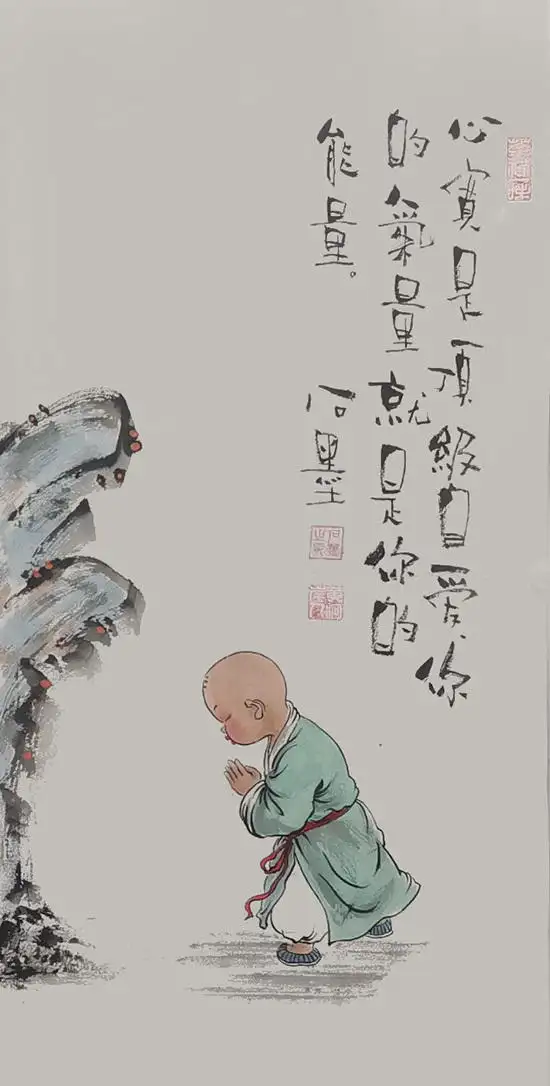 心寬是頂級自愛、你
的氣量就是你的
能量。
石墨